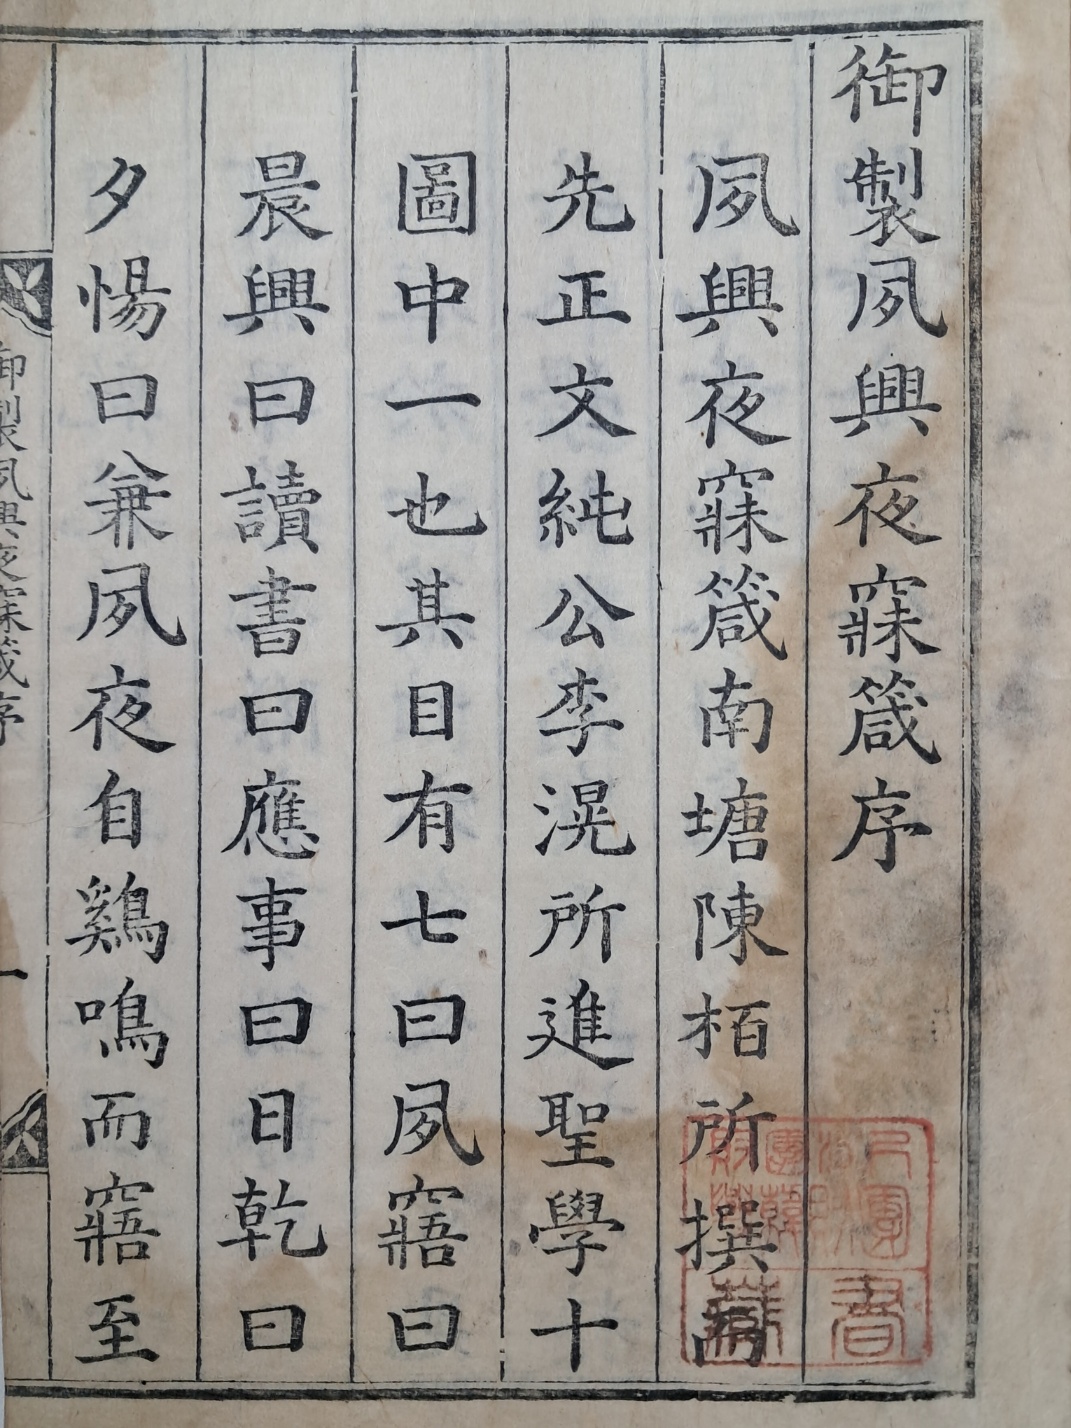 御製夙興夜寐箴序
夙興夜寐箴南塘陳栢所撰而
先正文純公李滉所進聖學十
圖中一也其目有七曰夙寤曰
晨興曰讀書曰應事曰日乾曰
夕惕曰兼夙夜自鷄鳴而寤至
御製夙興夜寐箴序
一